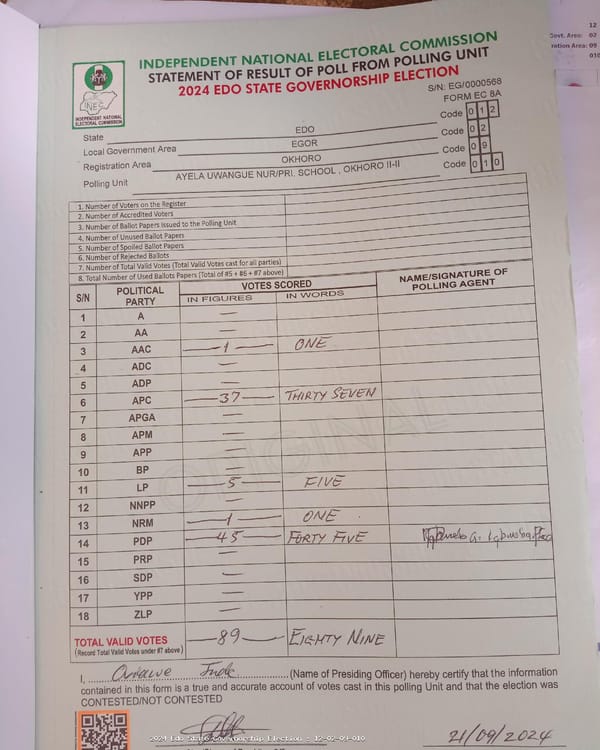 INDEPENDENT NATIONAL ELECTORAL COMMISSION
STATEMENT OF RESULT OF POLL FROM POLLING UNIT
2024 EDO STATE GOVERNORSHIP ELECTION
INEC
INDEPENDENT NATIONAL ELECTORAL COMMISSION
S/N: EG/0000568
FORM EC 8A
State EDO Code 0 1 2
Local Government Area EGOR Code 0 2
Registration Area OKHORO Code 0 9
Polling Unit AYELA UWANGUE NUR/PRI. SCHOOL , OKHORO II-II Code 0 1 0
1. Number of Voters on the Register
2. Number of Accredited Voters
3. Number of Ballot Papers Issued to the Polling Unit
4. Number of Unused Ballot Papers
5. Number of Spoiled Ballot Papers
6. Number of Rejected Ballots
7. Number of Total Valid Votes (Total Valid Votes cast for all parties)
8. Total Number of Used Ballots Papers (Total of #5 + #6 + #7 above)
S/N POLITICAL PARTY VOTES SCORED NAME/SIGNATURE OF POLLING AGENT
IN FIGURES IN WORDS
1 A —
2 AA —
3 AAC —1— ONE
4 ADC —
5 ADP —
6 APC —37— THIRTY SEVEN
7 APGA —
8 APM —
9 APP —
10 BP —
11 LP —5— FIVE
12 NNPP —
13 NRM —1— ONE
14 PDP —45— FORTY FIVE
15 PRP —
16 SDP —
17 YPP —
18 ZLP —
TOTAL VALID VOTES —89— EIGHTY NINE
(Record Total Valid Votes under #7 above)
ORIGINAL
I, (Name of Presiding Officer) hereby certify that the information
contained in this form is a true and accurate account of votes cast in this polling Unit and that the election was
CONTESTED/NOT CONTESTED
21/09/2024
2024 Edo State Governorship Election - 12-02-09-010
12
Govt. Area: 02
ration Area: 09
010